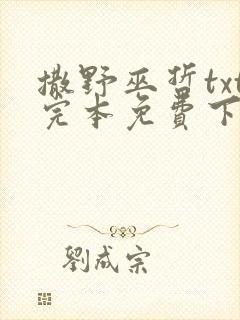 撒野巫哲txt
完本免費下
劉成宗